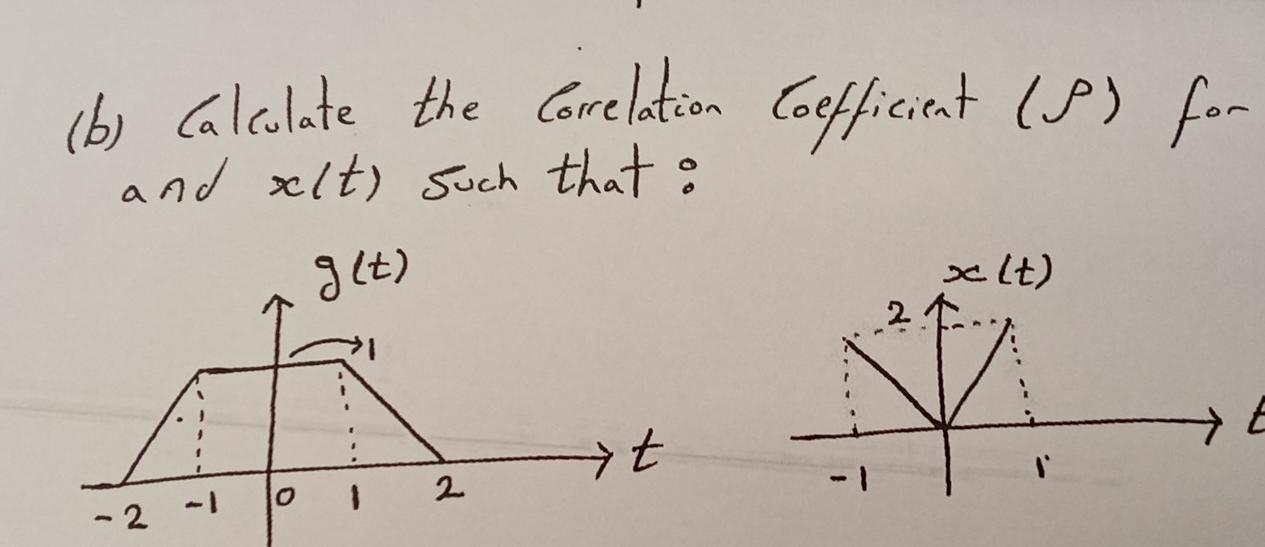 (b) Calculate the Correlation Coefficient (ρ) for
and x(t) such that :
g(t)
1
t
-2 -1 0 1 2
x(t)
2
t
-1 1